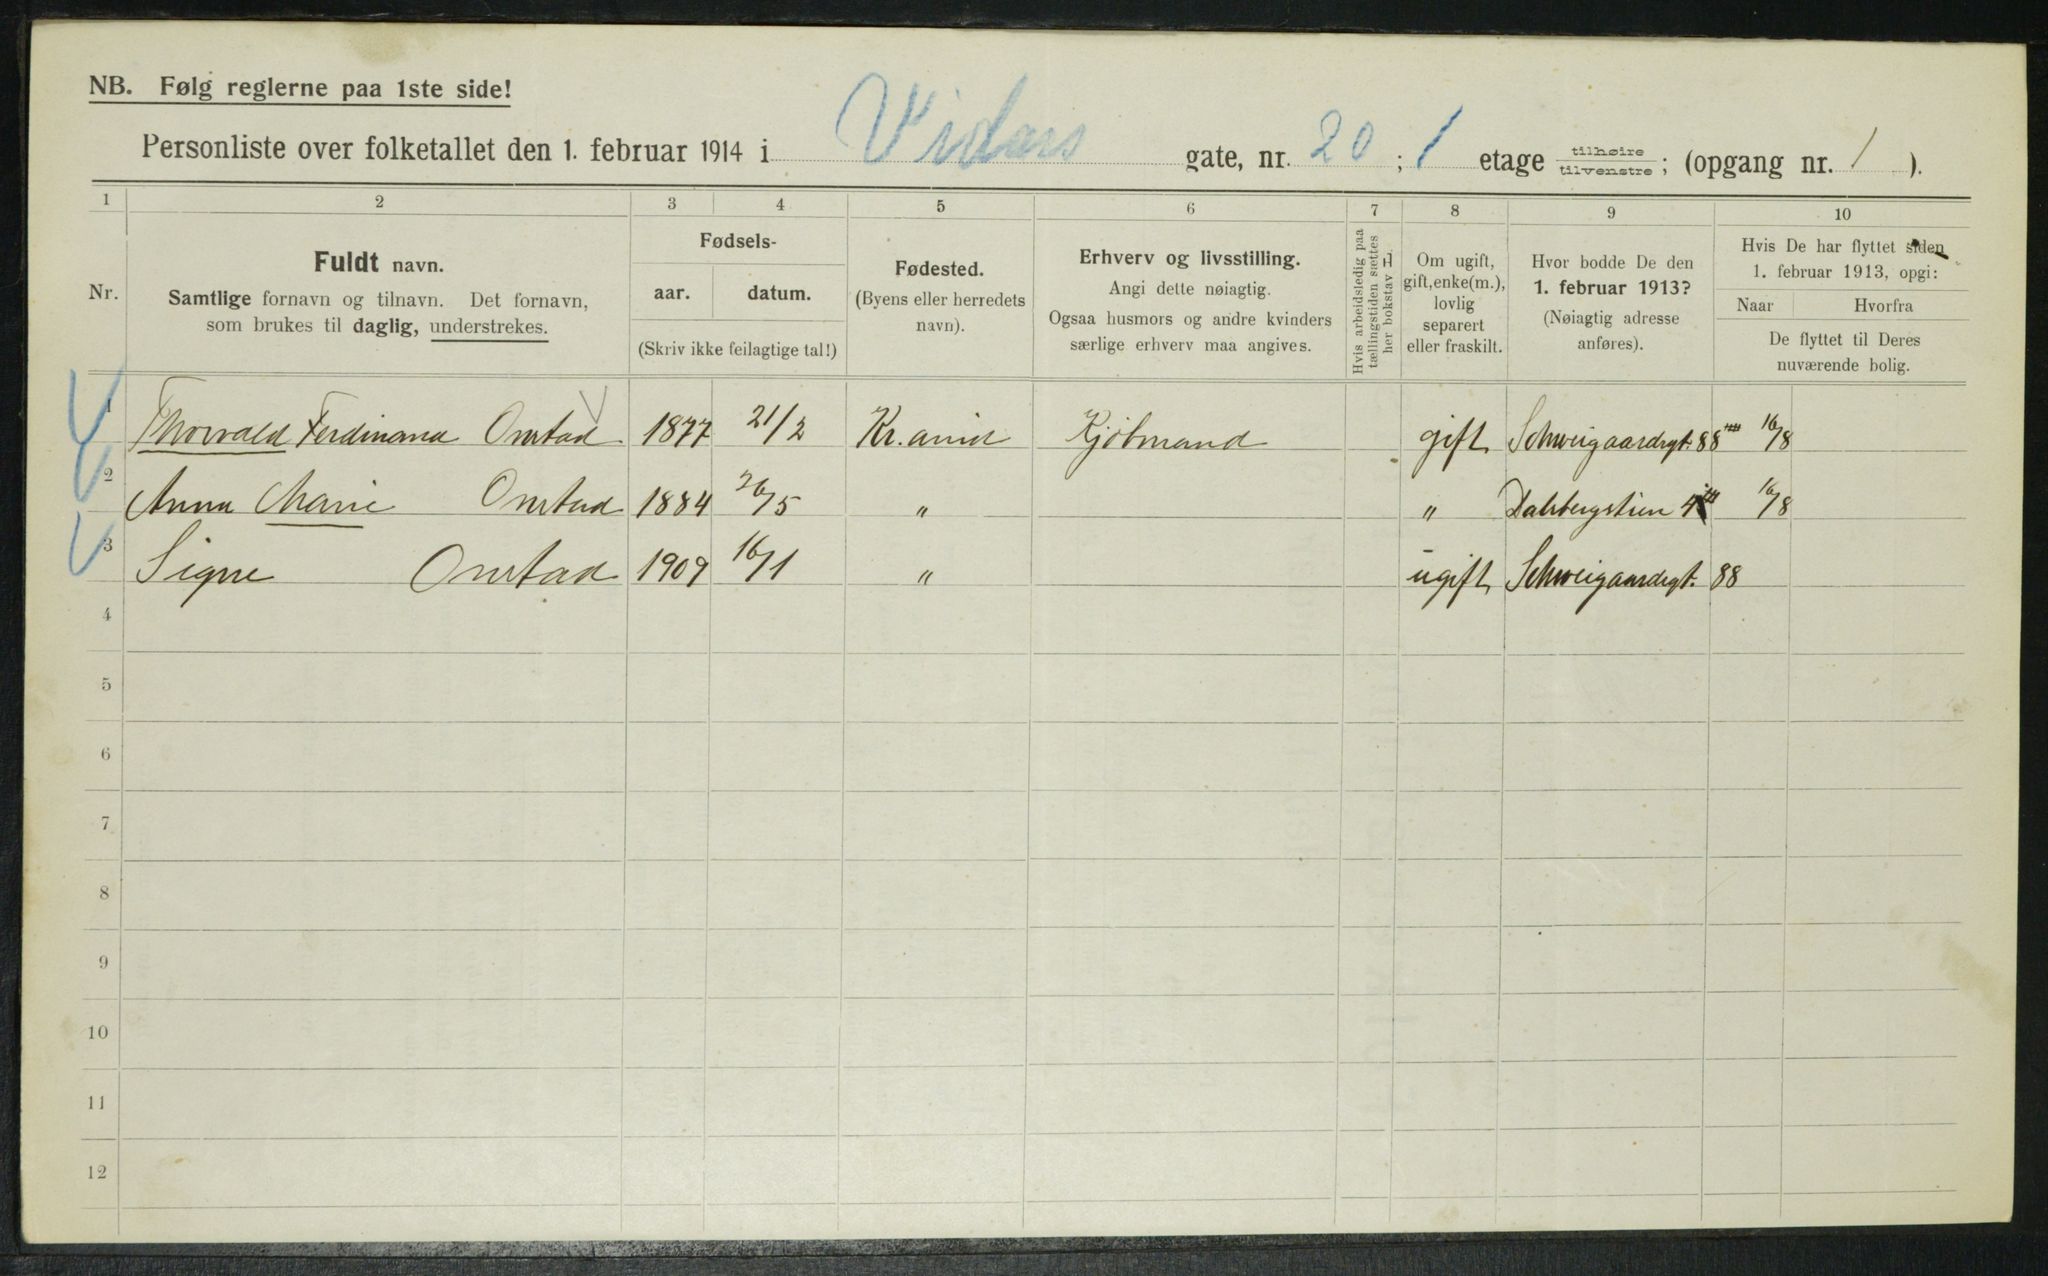 NB. Følg reglerne paa 1ste side!
Personliste over folketallet den 1. februar 1914 i Vidars gate, nr. 20 ; 1 etage tilhøire tilvenstre ; (opgang nr. 1 ).
1 2 3 4 5 6 7 8 9 10
Nr.
Fuldt navn.
Samtlige fornavn og tilnavn. Det fornavn,
som brukes til daglig, understrekes.
Fødsels-
aar. datum.
(Skriv ikke feilagtige tal!)
Fødested.
(Byens eller herredets
navn).
Erhverv og livsstilling.
Angi dette nøiagtig.
Ogsaa husmors og andre kvinders
særlige erhverv maa angives.
Hvis arbeidsledig paa
tællingstiden sættes
her bokstav L
Om ugift,
gift, enke(m.),
lovlig
separert
eller fraskilt.
Hvor bodde De den
1. februar 1913?
(Nøiagtig adresse
anføres).
Hvis De har flyttet siden
1. februar 1913, opgi:
Naar Hvorfra
De flyttet til Deres
nuværende bolig.
1 Thorvald Ferdinand Onstad 1877 21/2 Kr.ania Kjøbmand gift Schweigaardsgt. 88 16/8
2 Anna Marie Onstad 1884 26/5 " " Dalsbergstien 16/8
3 Signe Onstad 1909 16/1 " ugift Schweigaardsgt. 88
4
5
6
7
8
9
10
11
12